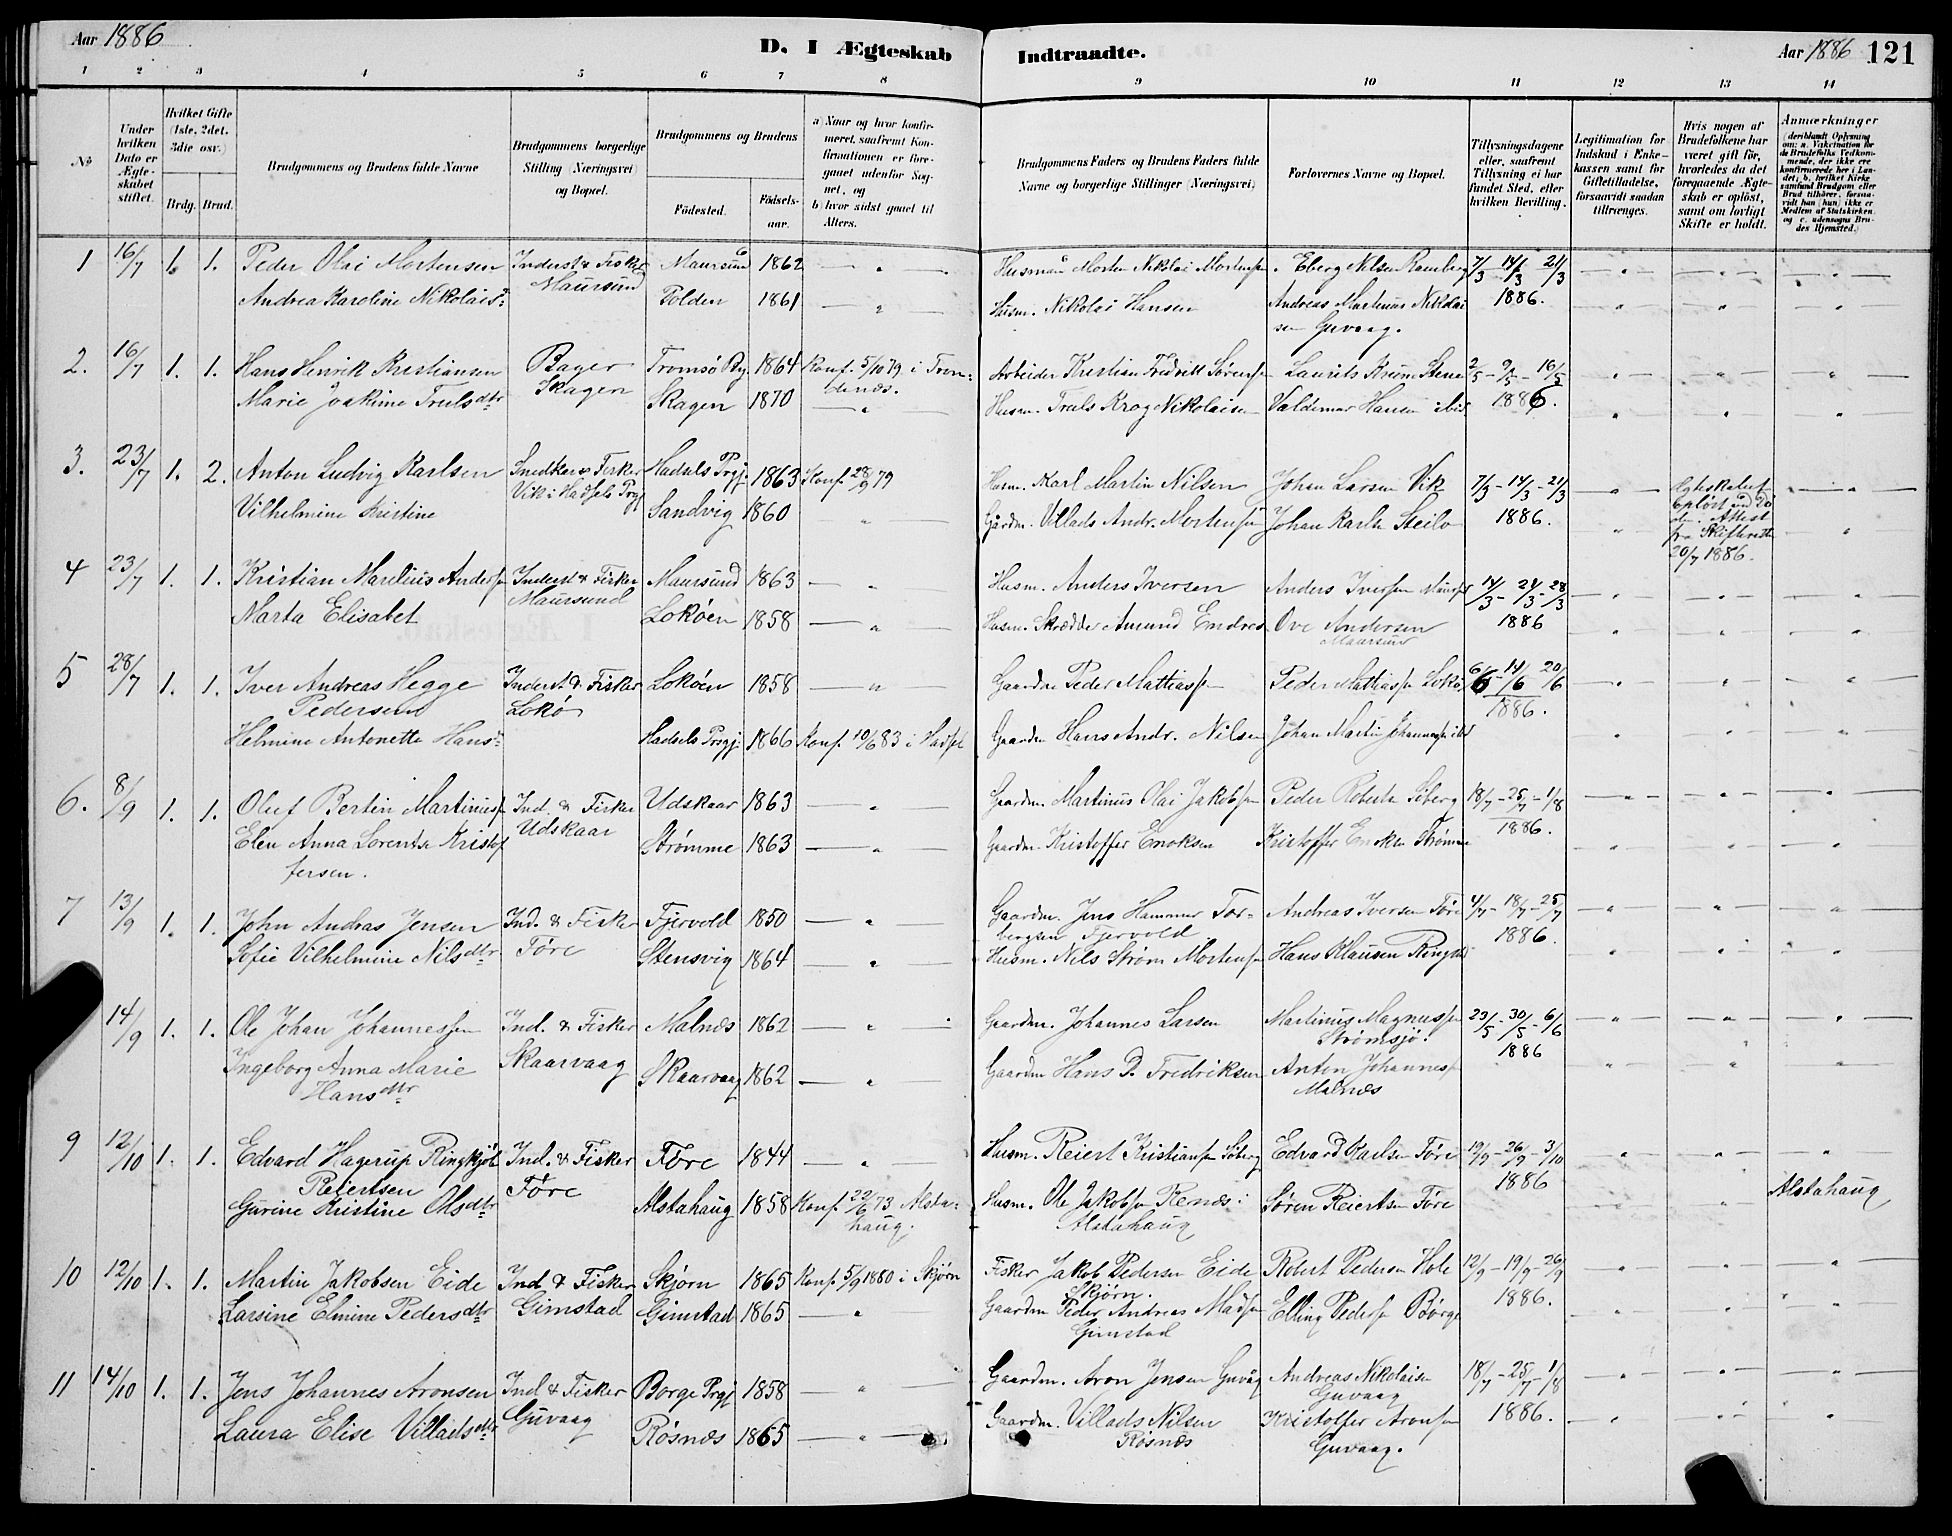 Aar 1886
D. I Ægteskab Indtraadte.
Aar 1886 121
1 2 3 4 5 6 7 8 9 10 11 12 13 14
No
Under hvilken Dato er Ægteskabet stiftet.
Hvilket Gifte (1ste, 2det, 3die osv.)
Brdg. Brud.
Brudgommens og Brudens fulde Navne
Brudgommens borgerlige Stilling (Næringsvei) og Bopæl.
Brudgommens og Brudens
Fødested.
Fødselsaar.
a) Naar og hvor konfirmeret, saafremt Konfirmationen er foregaaet udenfor Sognet, og
b) hvor sidst gaaet til Alters.
Brudgommens Faders og Brudens Faders fulde Navne og borgerlige Stillinger (Næringsvei)
Forlovernes Navne og Bopæl.
Tillysningsdagene eller, saafremt Tillysning ei har fundet Sted, efter hvilken Bevilling.
Legitimation for Indskud i Enkekassen samt for Giftetilladelse, forsaavidt saadan tiltrænges.
Hvis nogen af Brudefolkene har været gift før, hvorledes da det foregaaende Ægteskab er opløst, samt om lovligt Skifte er holdt.
Anmærkninger (deriblandt Oplysning om: a. Vakcination for de Brudefolks Vedkommende, der ikke ere konfirmerede her i Landet; b. hvilket Kirkesamfund Brudgom eller Brud tilhører, forsaavidt han (hun) ikke er Medlem af Statskirken, og c. udensogns Brudes Hjemsted.)
1 16/7 1. 1. Peder Olai Mortensen Inderst & Fisker Maursund 1862 — " — Husmd Morten Nikolai Mortensen. Eberg Nilsen Ramberg 7/3 - 14/3 - 21/3
Andrea Karoline Nikolaisdr Maursund Folden 1861 — " — Husm. Nikolai Hansen Andreas Martinus Nikolai 1886.
sen Guvaag.
2. 16/7 1. 1. Hans Henrik Kristiansen Bager Tromsö By 1864 Konf. 5/10 79 i Tron- Arbeider Kristian Fredrikk Sörensen Laurits Krüm Stene 2/5 - 9/5 - 16/5
Marie Joakime Trulsdtr Skagen Skagen 1870 denæs. — " — Husm. Truls Krog Nikolaisen Valdemar Hansen ibid 1886.
3. 23/7 1. 2. Anton Ludvig Karlsen Snedker & Fisker Hadsels Prgj. 1863 Konf. 28/9 79 Husm. Karl Martin Nilsen Johan Larsen Vik 7/3 - 14/3 - 21/3 — " — Ægteskabet
Vilhelmine Kristine Vik i Hadsels Prgj Sandvig 1860 — " — Gårdm. Villads Andr. Mortensen Johan Karlsen Steilo 1886. opløst ved Dø
den. Attest
fra Skifteretten
20/7 1886.
4 23/7 1. 1. Kristian Marelius Andersen Inderst & Fisker Maursund 1863 — " — Husm. Anders Iversen Anders Iversen Maurs 14/3 - 21/3 - 28/3
Marta Elisabet Maursund Lokøen 1858 — " — Husm. Skrædder Amund Endres Ove Andersen 1886
Maarsund
5 28/7 1. 1. Iver Andreas Hegge Inderst & Fisker Lokøen 1858 — " — Gaardm Peder Mathiassen Peder Mathiassen Lokø 6/6 - 14/6 - 20/6
Pedersen Lokø 1886.
Helmine Antonette Hansdr Hadsels Prgj. 1866 Konf. 10/6 83 i Hadsel Gaardm Hans Andr. Nilsen Johan Martin Johannessen ibd
6. 8/9 1. 1. Oluf Bertin Martinussen Ind. & Fisker Udskaar 1863 — " — Gaardm. Martinus Olai Jakobsen Peder Robertsen Søberg 18/7 - 25/7 - 1/8
Elen Anna Lorentse Kristof Udskaar Strømme 1863 — " — Gaardm. Kristoffer Enoksen Kristoffer Enoksen Strømme 1886.
fersen.
7 13/9 1. 1. John Andreas Jensen Ind. & Fisker Fjervold 1850 — " — Gaardm. Jens Hammer Tor- Andreas Iversen Före 4/7 - 18/7 - 25/7
bergsen Fjervold 1886.
Sofie Vilhelmine Nilsdtr Före Stensvig 1864 — " — Husm. Nils Strøm Mortensen Hans Klausen Ringstad
14/9 1. 1. Ole Johan Johannessen Ind. & Fisker Malnæs 1862 — " — Gaardm. Johannes Larsen Martinus Magnussen 23/5 - 30/5 - 6/6
Strømsjø. 1886
Ingeborg Anna Marie Skaarvaag Skaarvaag 1862 — " — Gaardm Hans D. Fredriksen Anton Johannessen
Hansdtr Malnæs
9 12/10 1. 1. Edvard Hagerup Ringkjøb Ind. & Fisker Före 1844 — " — Husm. Reiert Kristiansen Søberg Edvard Karlsen Före 19/9 - 26/9 - 3/10
Reiertsen Före 1886
Gurine Kristine Olsdtr Alstahaug 1858 Konf. 22/6 73 Alsta- Husm. Ole Jakobsen Renæs i Søren Reiertsen Före Alstahaug
haug. Alstahaug
10 12/10 1. 1. Martin Jakobsen Eide Ind & Fisker Skjørn 1865 Konf. 5/9 1880 i Skjørn Fisker Jakob Pedersen Eide Robert Pedersen Hole 12/9 - 19/9 - 26/9
Skjørn. 1886.
Larsine Elmine Pedersdtr Gimstad Gimstad 1865 — " Gaardm Peder Andreas Madsen Elling Pedersen Börge
Gimstad
11 14/10 1. 1. Jens Johannes Aronsen Ind & Fisker Borge Prgj 1858 — " — Gaardm. Aron Jensen Guvåg Andreas Nikolaisen 18/7 - 25/7 - 1/8
Guvaag
Laura Elise Villadsdtr Guvaag Røsnæs 1865 — " — Gaardm. Villads Nilsen Kristoffer Aronsen 1886.
Røsnæs Guvaag.